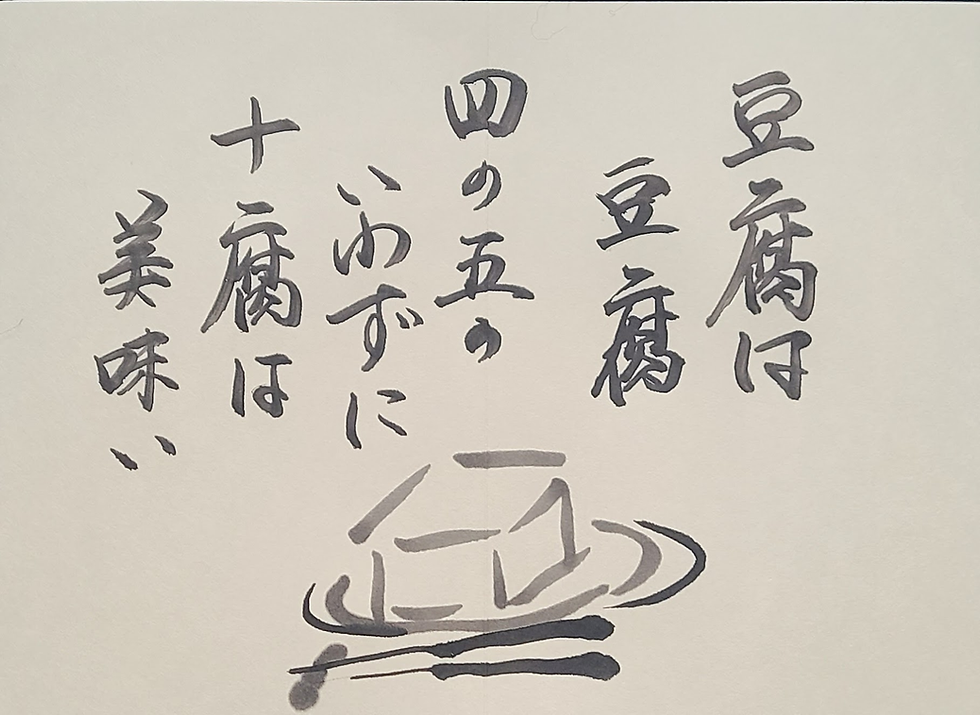 豆腐は
豆腐
四の五の
いわずに
十腐は
美味い